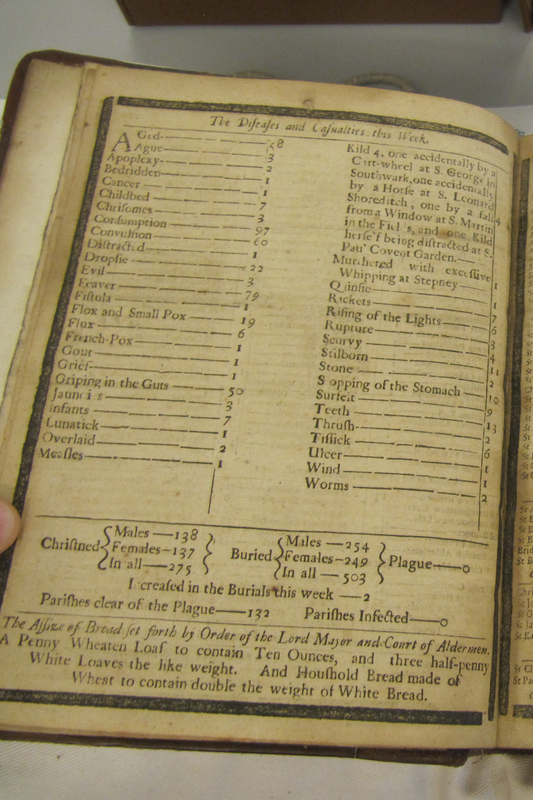 The Diſeaſes and Caſualties this Week.
AGed 28
Ague 3
Apoplexy 2
Bedridden 1
Cancer 1
Childbed 7
Chriſomes 3
Conſumption 97
Convulſion 60
Diſtracted 1
Dropſie 22
Evil 3
Feaver 79
Fiſtula 1
Flox and Small Pox 19
Flux 6
French-Pox 1
Gout 1
Grief 1
Griping in the Guts 50
3
Infants 7
Lunatick 1
Overlaid 2
Meaſles 1
Kild 4, one accidentally by a
Cart-wheel at S. George in
Southwark, one accidentally
by a Horſe at S. Leonard
Shoreditch, one by a fall 4
from a Window at S. Martin
in the Fields, and one Kild
herſelf being diſtracted at S.
Paul Covent Garden.
Murthered with exceſſive
Whipping at Stepney 1
Quinſie 1
Rickets 7
Riſing of the Lights 6
Rupture 3
Scurvy 4
Stilborn 11
Stone 2
Stopping of the Stomach 10
Surfeit 9
Teeth 13
Thruſh 2
Tiſſick 6
Ulcer 1
Wind 1
Worms 2
Chriſtned { Males—138 Females—137 In all—275 }
Buried { Males—254 Females—249 In all—503 } Plague—0
Increaſed in the Burials this week—2
Pariſhes clear of the Plague—132 Pariſhes Infected—0
The Aſſize of Bread ſet forth by Order of the Lord Mayor and Court of Aldermen.
A Penny Wheaten Loaf to contain Ten Ounces, and three half-penny
White Loaves the like weight. And Houſhold Bread made of
Wheat to contain double the weight of White Bread.